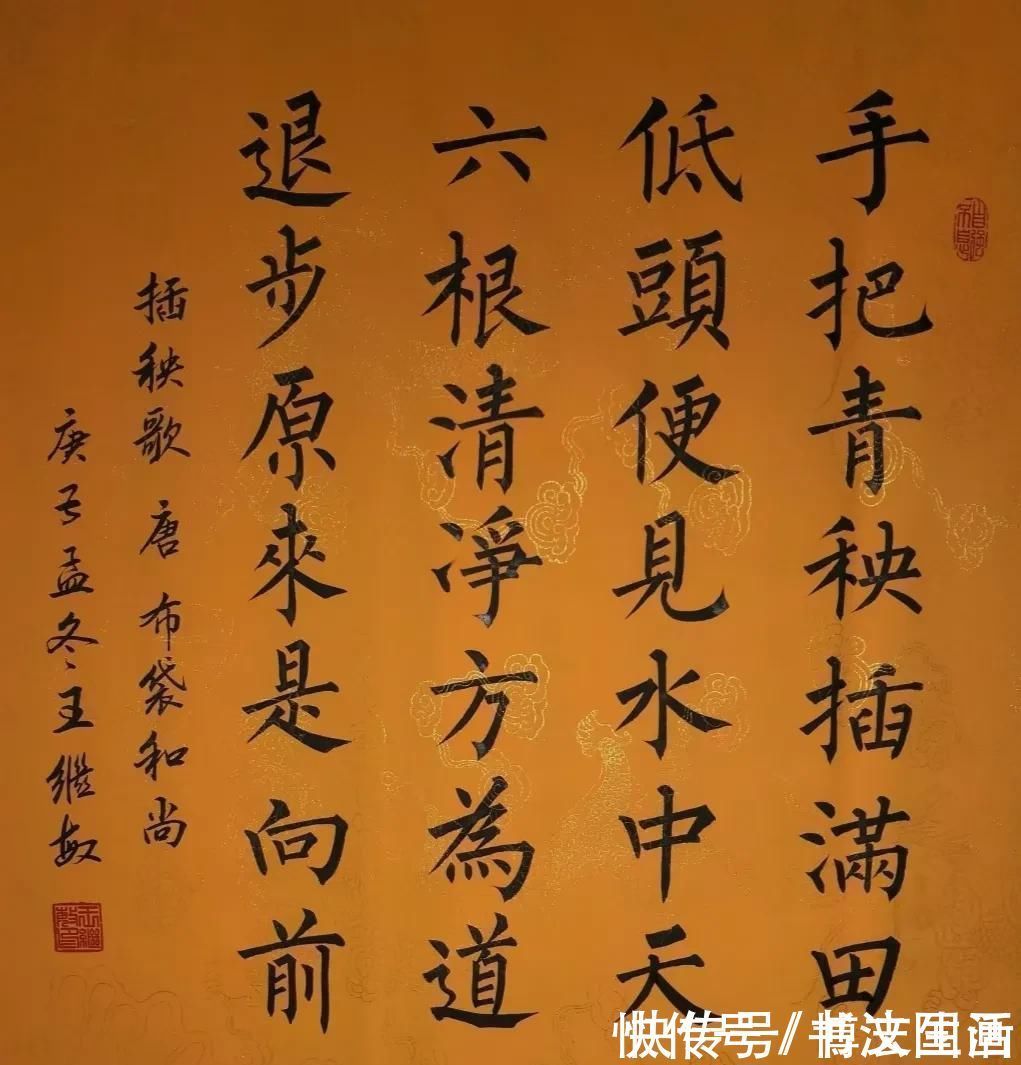 手把青秧插滿田
低頭便見水中天
六根清淨方為道
退步原來是向前
插秧歌 唐 布袋和尚
庚子孟冬王繼敏
快传号/